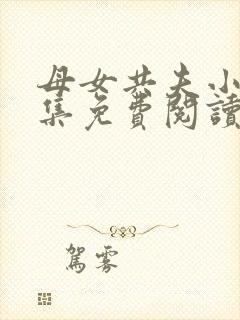 母女共夫小
集免費閱讀
駕霧